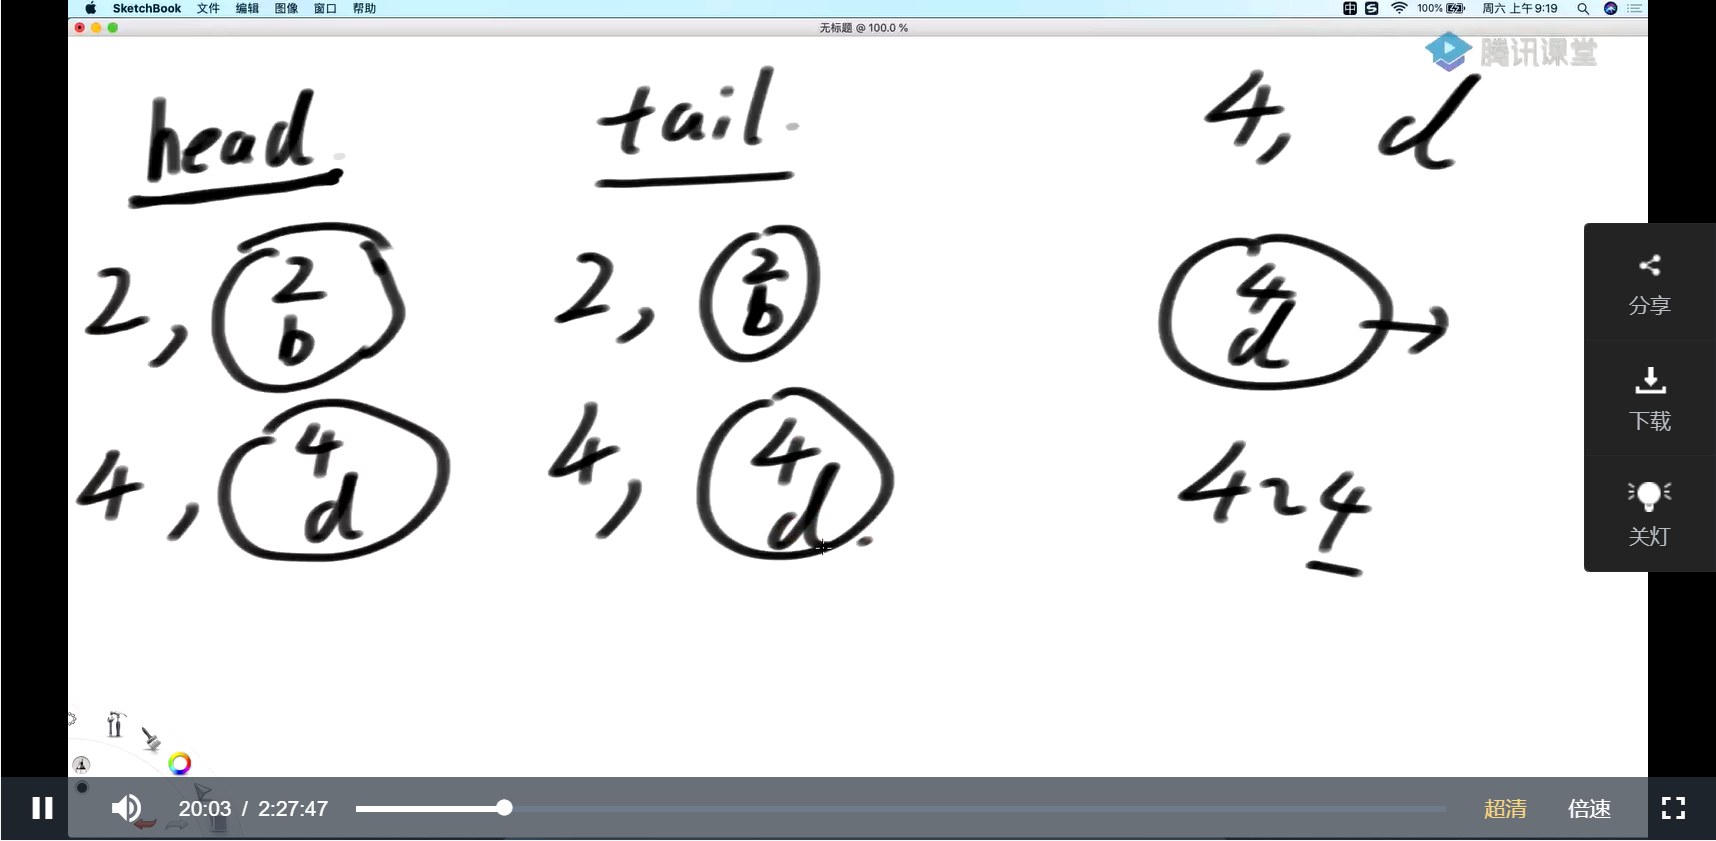 SketchBook 文件 编辑 图像 窗口 帮助 100% 周六 上午9:19
无标题 @ 100.0 %
腾讯课堂
head tail 4, d
2, 2 b 2, 2 b 4 d
4, 4 d 4, 4 d 4~4
分享
下载
关灯
20:03 / 2:27:47 超清 倍速